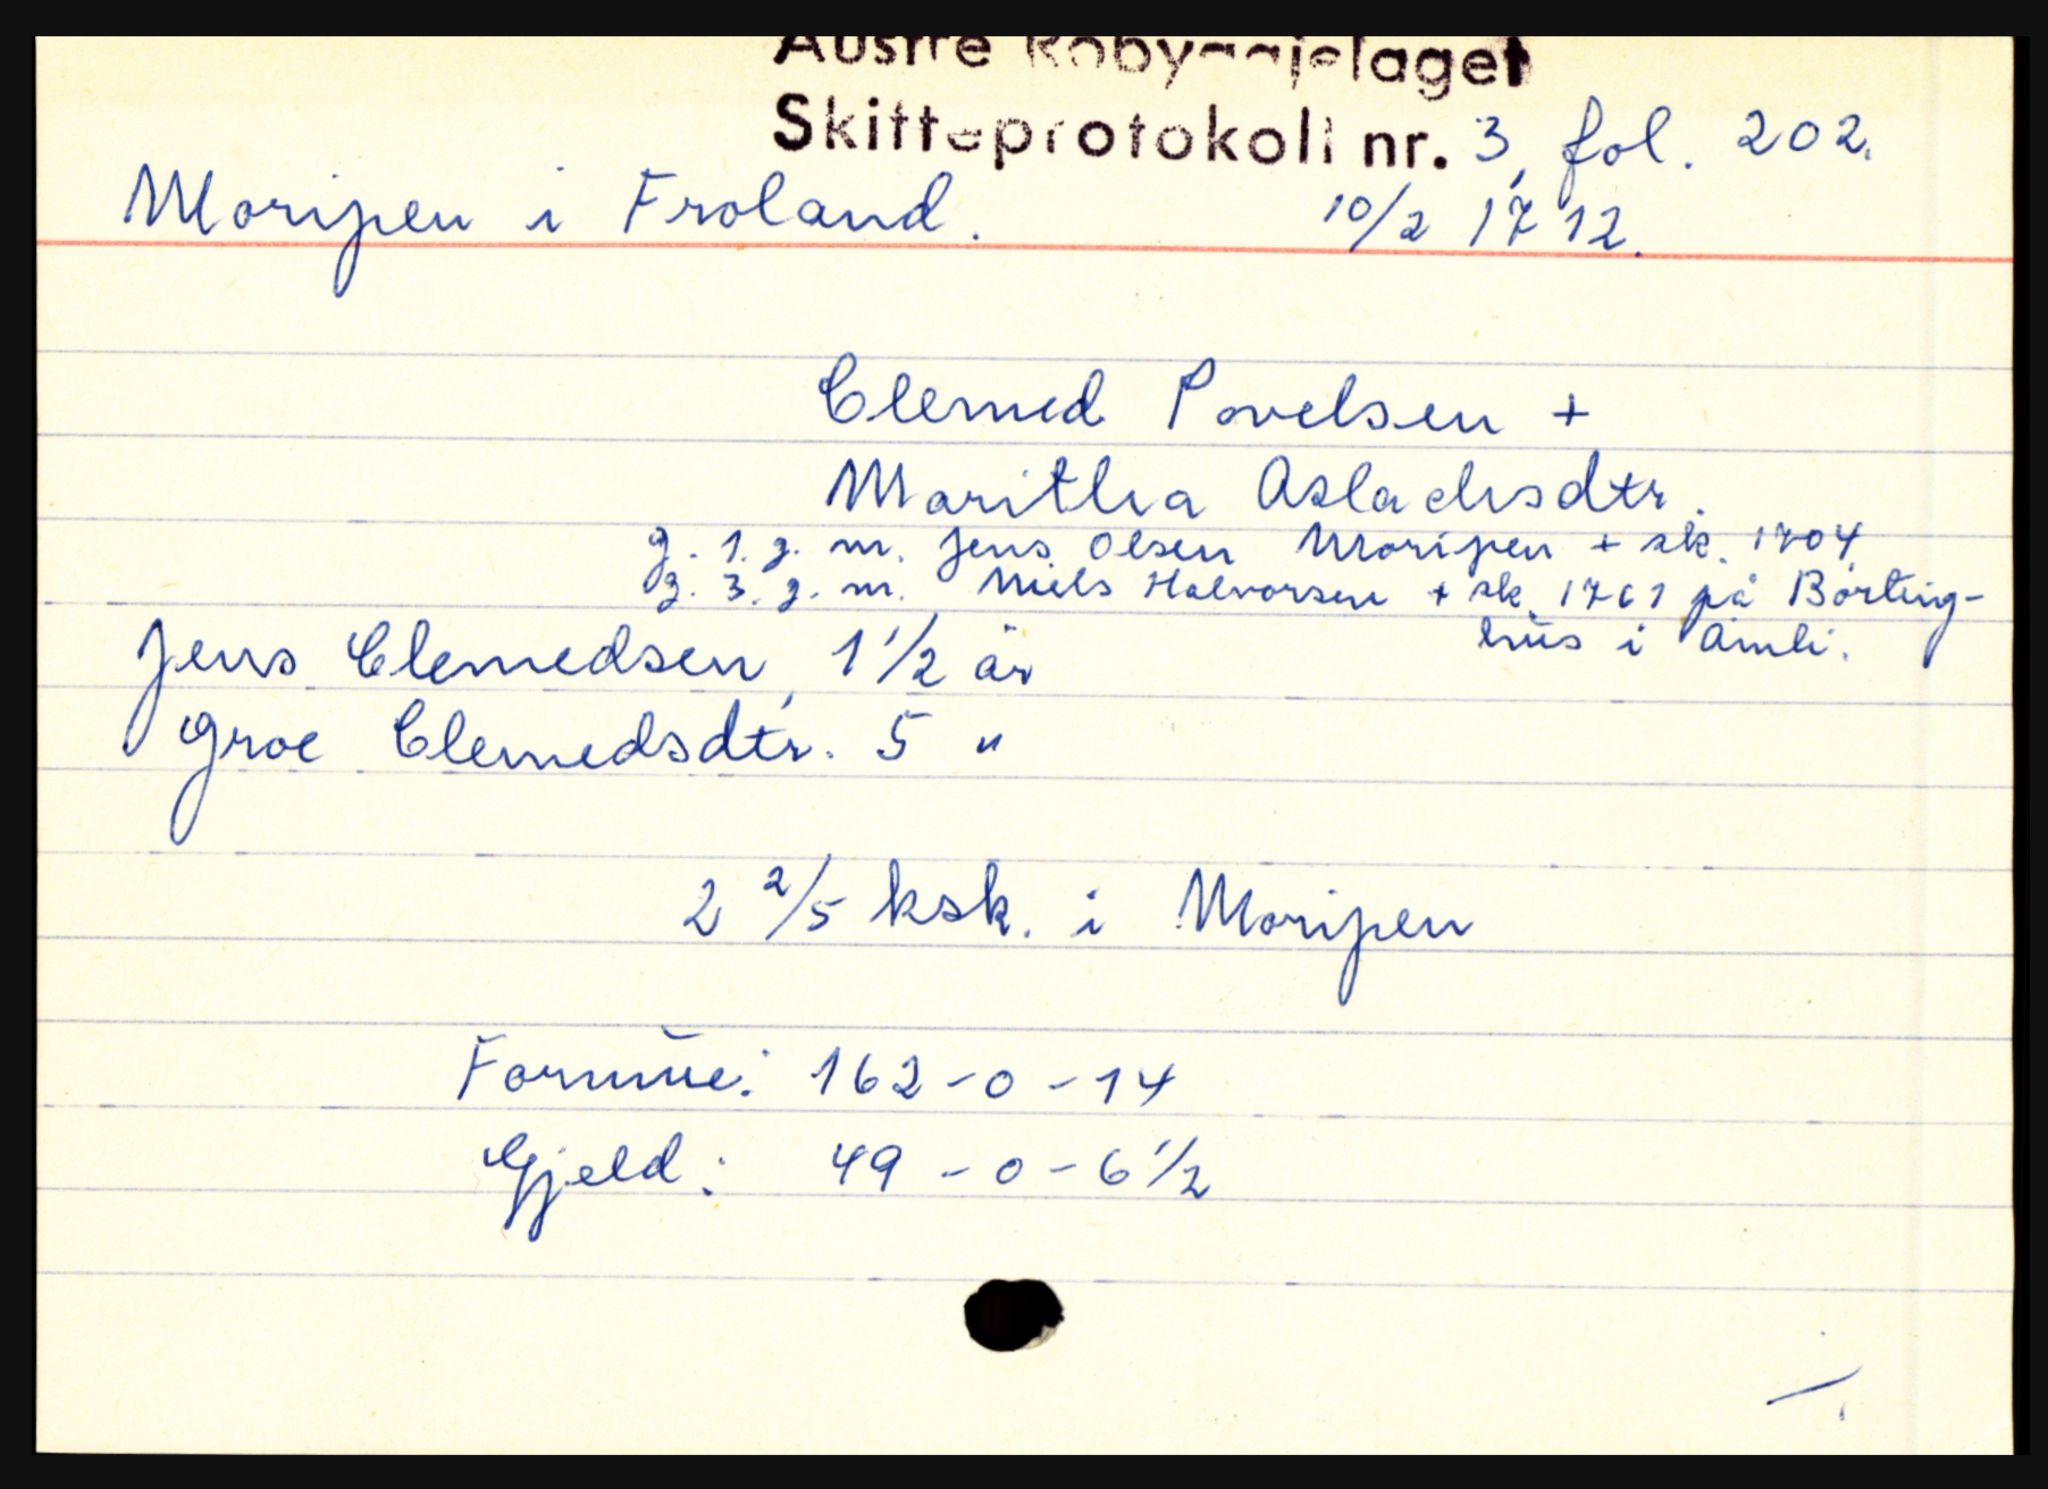 Austre Robyggjelaget
Skifteprotokoll nr. 3, fol. 202.
Moripen i Froland. 10/2 1712.
Clemed Povelsen +
Maritha Aslachsdtr.
g. 1. g. m. Jens Olsen Moripen + sk. 1704
g. 3. g. m. Niels Halvorsen + sk. 1761 på Börting-
hus i Åmli.
Jens Clemedsen, 1 1/2 år
Groe Clemedsdtr. 5 "
2 2/5 ksk. i Moripen
Formue: 162 - 0 - 14
Gjeld: 49 - 0 - 6 1/2